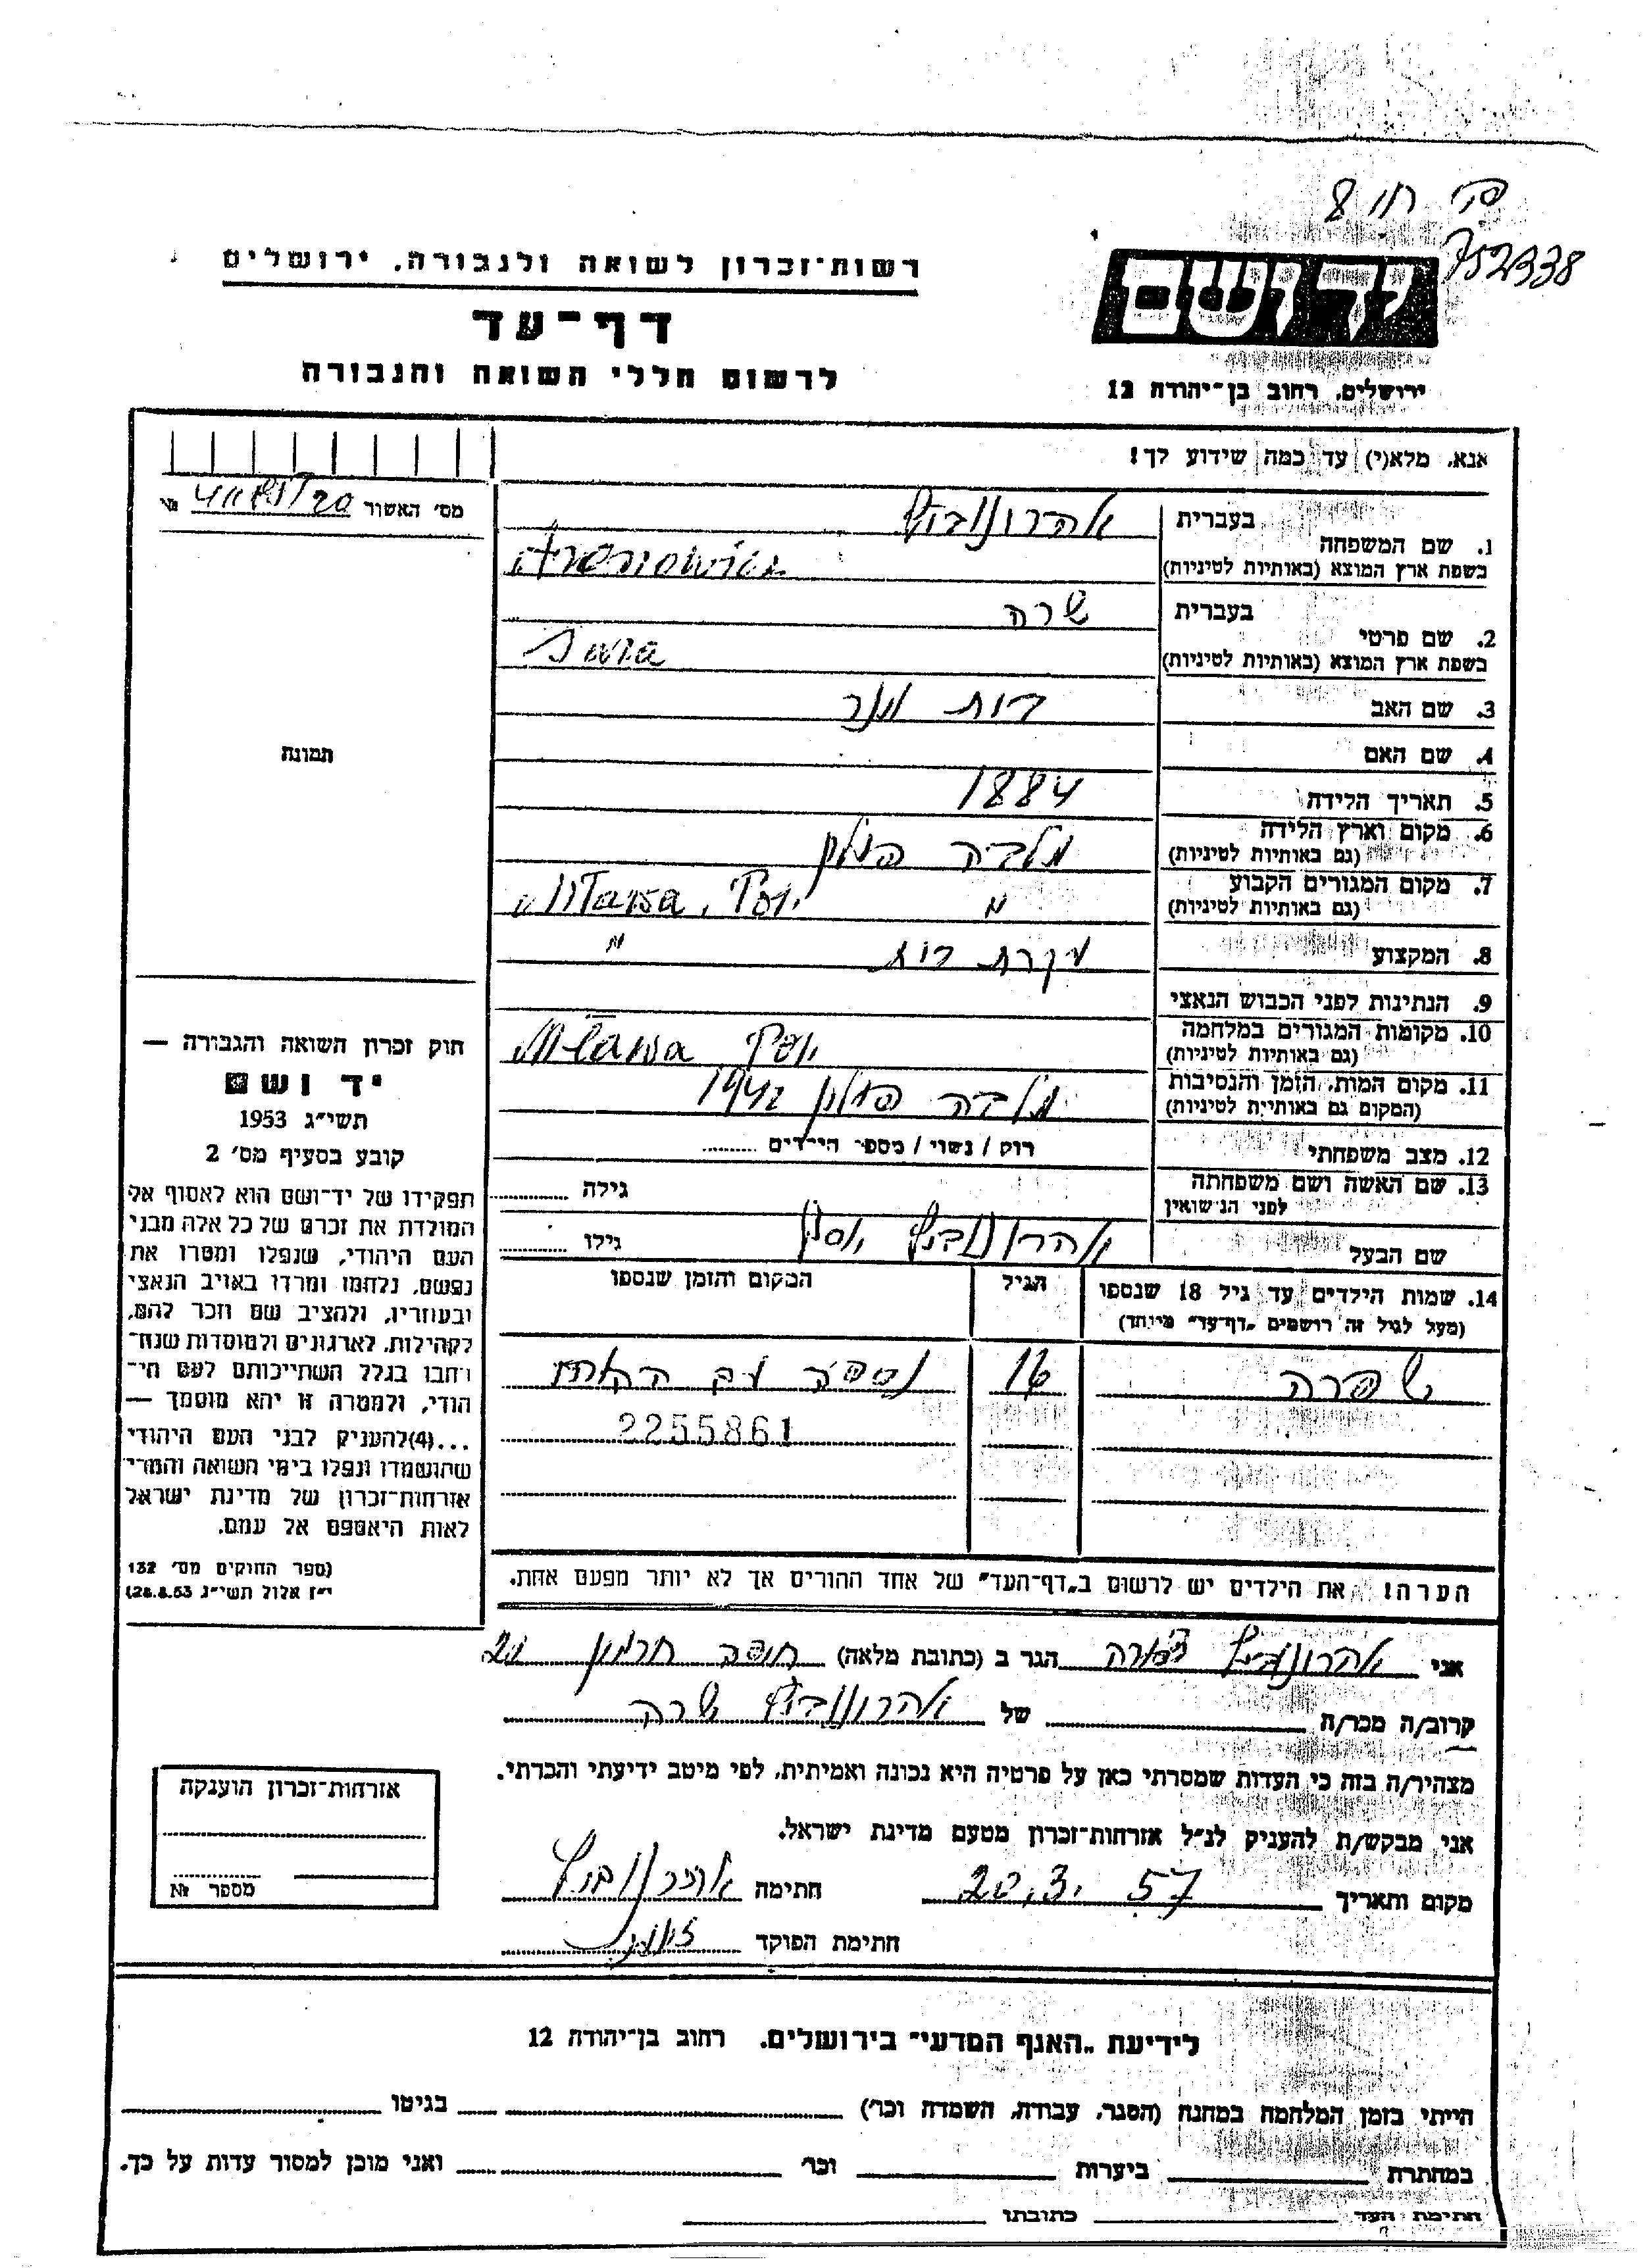 752338
רשות־זכרון לשואה ולגבורה, ירושלים
יד ושם
דף־עד
לרשום חללי השואה והגבורה
ירושלים, רחוב בן־יהודה 12
אנא, מלא(י) עד כמה שידוע לך!
מס' האשור №
1. שם המשפחה
בעברית
אהרונוביץ
בשפת ארץ המוצא (באותיות לטיניות)
2. שם פרטי
בעברית
שרה
בשפת ארץ המוצא (באותיות לטיניות)
Sara
3. שם האב
4. שם האם
5. תאריך הלידה
1884
6. מקום וארץ הלידה
(גם באותיות לטיניות)
מלבה פולין
7. מקום המגורים הקבוע
(גם באותיות לטיניות)
" Mlawa, Pol.
8. המקצוע
עקרת בית "
9. הנתינות לפני הכבוש הנאצי
10. מקומות המגורים במלחמה
(גם באותיות לטיניות)
Mlawa Pol.
11. מקום המות, הזמן והנסיבות
(המקום גם באותיות לטיניות)
מלבה פולין 1942
12. מצב משפחתי
רוק / נשוי / מספר הילדים
13. שם האשה ושם משפחתה
לפני הנישואין
גילה
שם הבעל
אהרונוביץ יוסף
גילו
14. שמות הילדים עד גיל 18 שנספו
(מעל לגיל זה רושמים „דף־עד" מיוחד)
הגיל
המקום והזמן שנספו
שפרה
16
נספה עם האם
2255861
הערה! את הילדים יש לרשום ב„דף־העד" של אחד ההורים אך לא יותר מפעם אחת.
תמונה
חוק זכרון השואה והגבורה —
יד ושם
תשי"ג 1953
קובע בסעיף מס' 2
תפקידו של יד־ושם הוא לאסוף אל
המולדת את זכרם של כל אלה מבני
העם היהודי, שנפלו ומסרו את
נפשם, נלחמו ומרדו באויב הנאצי
ובעוזריו, ולהציב שם וזכר להם,
לקהילות, לארגונים ולמוסדות שנח־
רבו בגלל השתייכותם לעם הי־
הודי, ולמטרה זו יהא מוסמך —
...(4)להעניק לבני העם היהודי
שהושמדו ונפלו בימי השואה והמרי
אזרחות־זכרון של מדינת ישראל
לאות היאספם אל עמם.
(ספר החוקים מס' 132
י"ז אלול תשי"ג 28.8.53)
אני אהרונוביץ הגר ב (כתובת מלאה) חיפה חרמון 21
קרוב/ה מכר/ה של אהרונוביץ שרה
מצהיר/ה בזה כי העדות שמסרתי כאן על פרטיה היא נכונה ואמיתית, לפי מיטב ידיעתי והכרתי.
אני מבקש/ת להעניק לנ"ל אזרחות־זכרון מטעם מדינת ישראל.
מקום ותאריך 20.3.57 חתימה אהרונוביץ
חתימת הפוקד
אזרחות־זכרון הוענקה
מספר №
לידיעת „האגף המדעי" בירושלים, רחוב בן־יהודה 12
הייתי בזמן המלחמה במחנה (הסגר, עבודה, השמדה וכו') בגיטו
במחתרת ביערות וכו' ואני מוכן למסור עדות על כך.
חתימת העד כתובתו